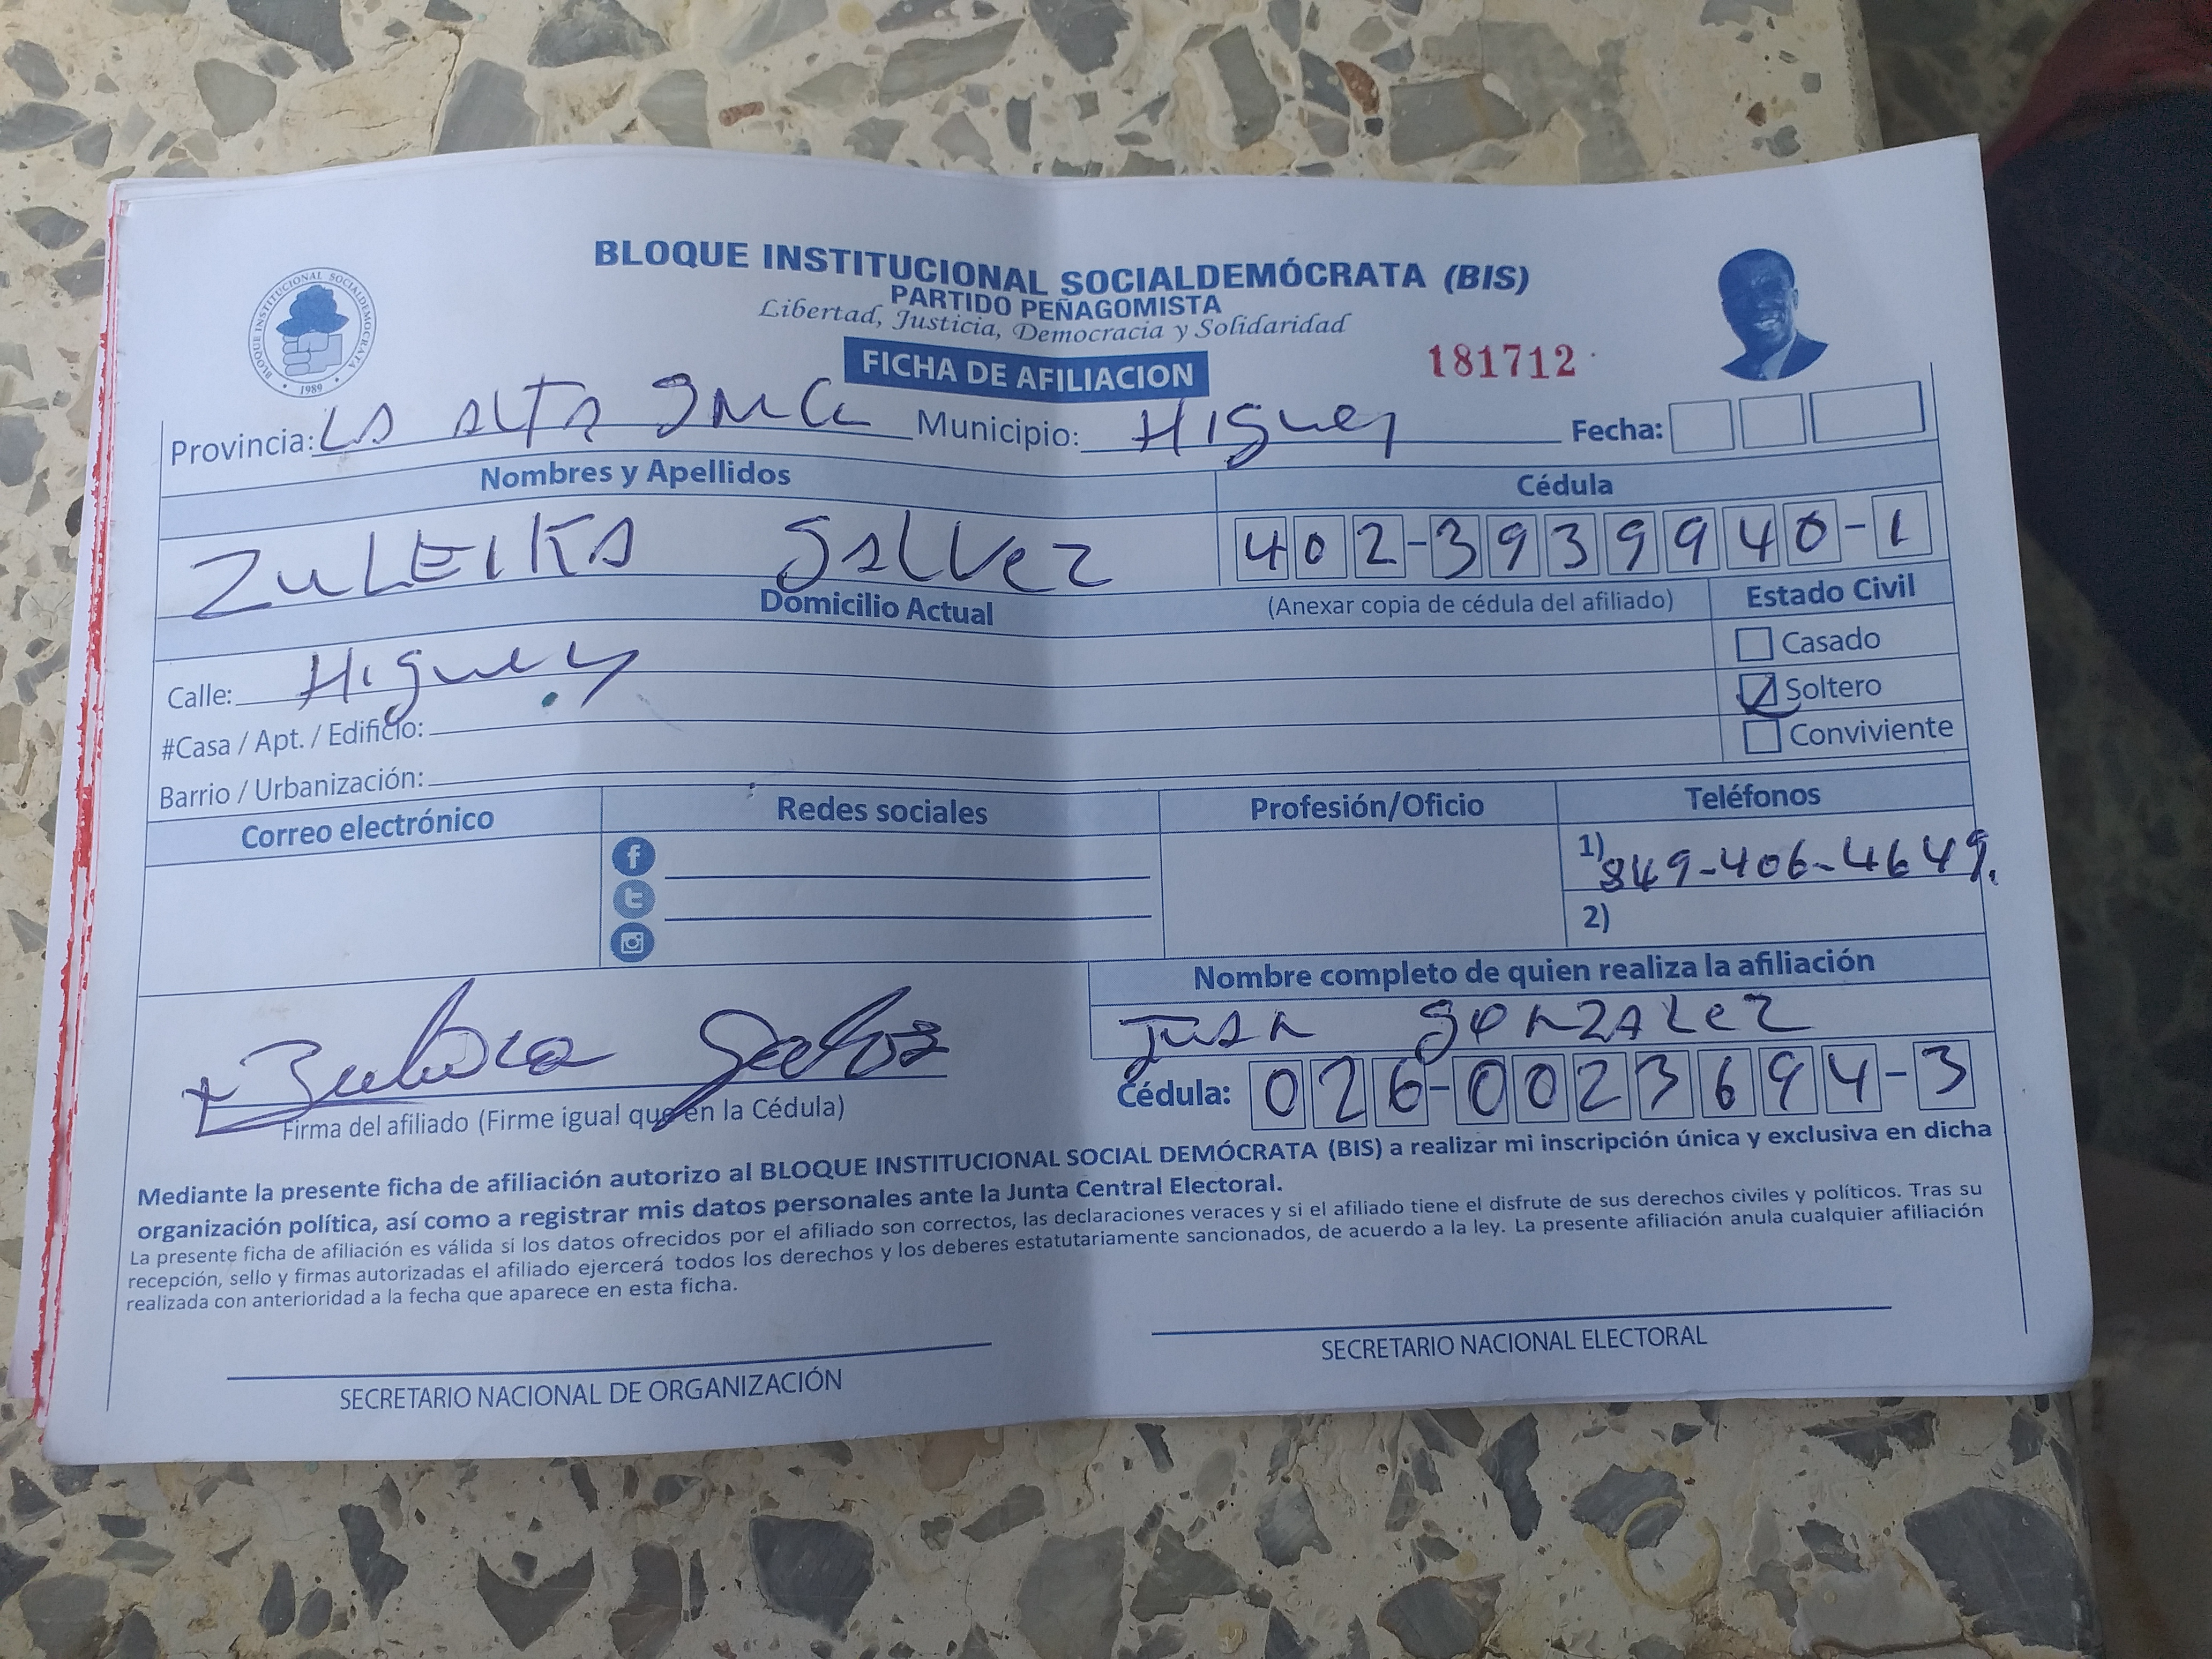 BLOQUE INSTITUCIONAL SOCIALDEMÓCRATA (BIS)
PARTIDO PEÑAGOMISTA
Libertad, Justicia, Democracia y Solidaridad
BLOQUE INSTITUCIONAL SOCIALDEMOCRATA
1989
FICHA DE AFILIACION
181712
Provincia: LA ALTA GRACIA Municipio: Higuey Fecha:
Nombres y Apellidos Cédula
ZULEIKA GALVEZ 402-3939940-1
Domicilio Actual (Anexar copia de cédula del afiliado) Estado Civil
Casado
Calle: Higuey Soltero
#Casa / Apt. / Edificio: Conviviente
Barrio / Urbanización:
Correo electrónico Redes sociales Profesión/Oficio Teléfonos
1) 849-406-4649.
2)
Nombre completo de quien realiza la afiliación
JUAN GONZALEZ
Cédula: 026-0023694-3
Firma del afiliado (Firme igual que en la Cédula)
Mediante la presente ficha de afiliación autorizo al BLOQUE INSTITUCIONAL SOCIAL DEMÓCRATA (BIS) a realizar mi inscripción única y exclusiva en dicha
organización política, así como a registrar mis datos personales ante la Junta Central Electoral.
La presente ficha de afiliación es válida si los datos ofrecidos por el afiliado son correctos, las declaraciones veraces y si el afiliado tiene el disfrute de sus derechos civiles y políticos. Tras su
recepción, sello y firmas autorizadas el afiliado ejercerá todos los derechos y los deberes estatutariamente sancionados, de acuerdo a la ley. La presente afiliación anula cualquier afiliación
realizada con anterioridad a la fecha que aparece en esta ficha.
SECRETARIO NACIONAL DE ORGANIZACIÓN SECRETARIO NACIONAL ELECTORAL